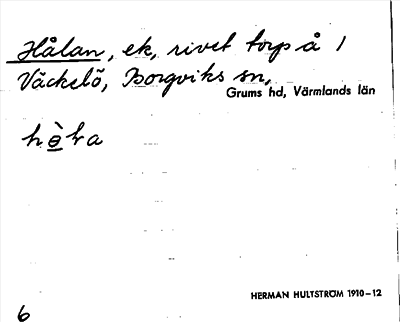 Hålan, ek, rivet torp å 1
Väckelö, Borgviks sn,
Grums hd, Värmlands län
HERMAN HULTSTRÖM 1910–12
6